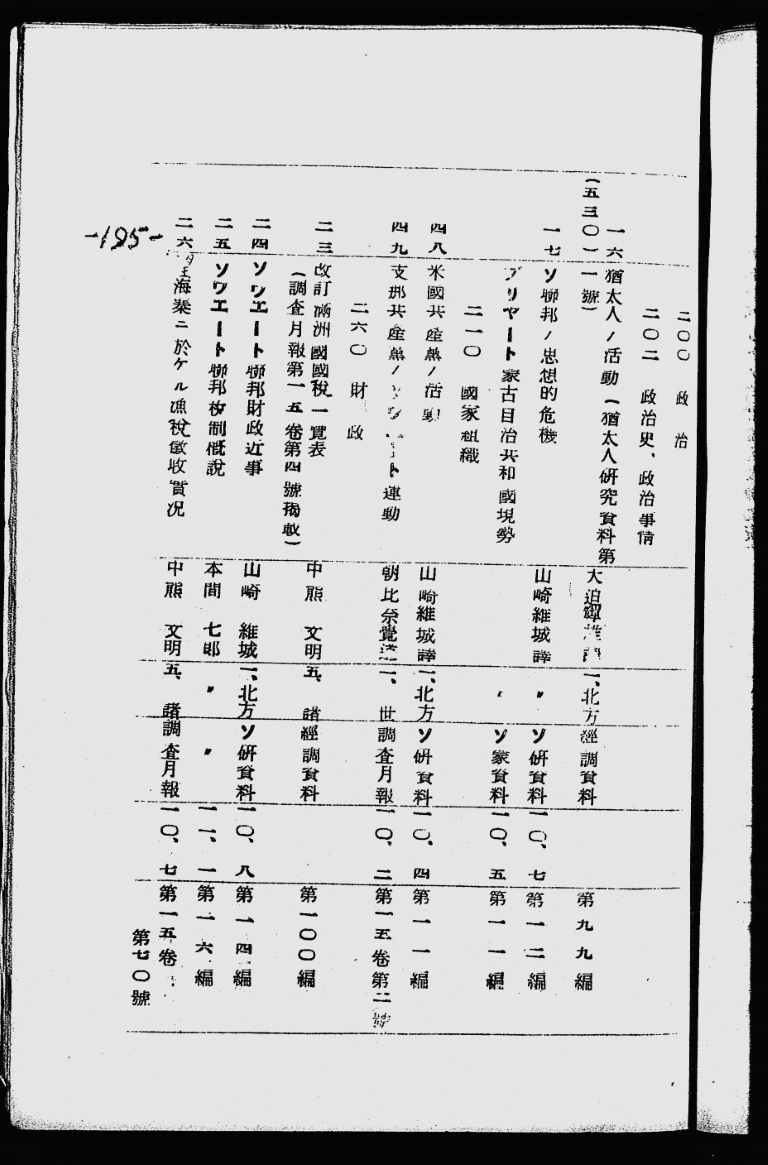 二〇〇 政治
二〇二 政治史、政治事情
一六 猶太人ノ活動（猶太人研究資料第 大迫 一、北方 經調資料 第九九編
（五三〇）一號）
一七 ソ聯邦ノ思想的危機 山崎維城譯 〃 ソ研資料 一〇、七 第一二編
ブリヤート蒙古自治共和國現勢 〃 ソ蒙資料 一〇、五 第一一編
二一〇 國家組織
四八 米國共產黨ノ活動 山崎維城譯 一、北方 ソ研資料 一〇、四 第一一編
四九 支那共產黨ノソヴエート運動 朝比奈覺 一、世 調査月報 一〇、二 第一五卷第二號
二六〇 財政
二三 改訂滿洲國國稅一覽表 中熊 文明 五、諸 經調資料 第一〇〇編
（調査月報第一五卷第四號揭載）
二四 ソウエート聯邦財政近事 山崎 維城 一、北方 ソ研資料 一〇、八 第一四編
二五 ソウエート聯邦稅制槪說 本間 七郎 〃 〃 一一、一 第一六編
二六 海秦ニ於ケル漁稅徵收實況 中熊 文明 五、諸 調査月報 一〇、七 第一五卷
第七〇號
-195-